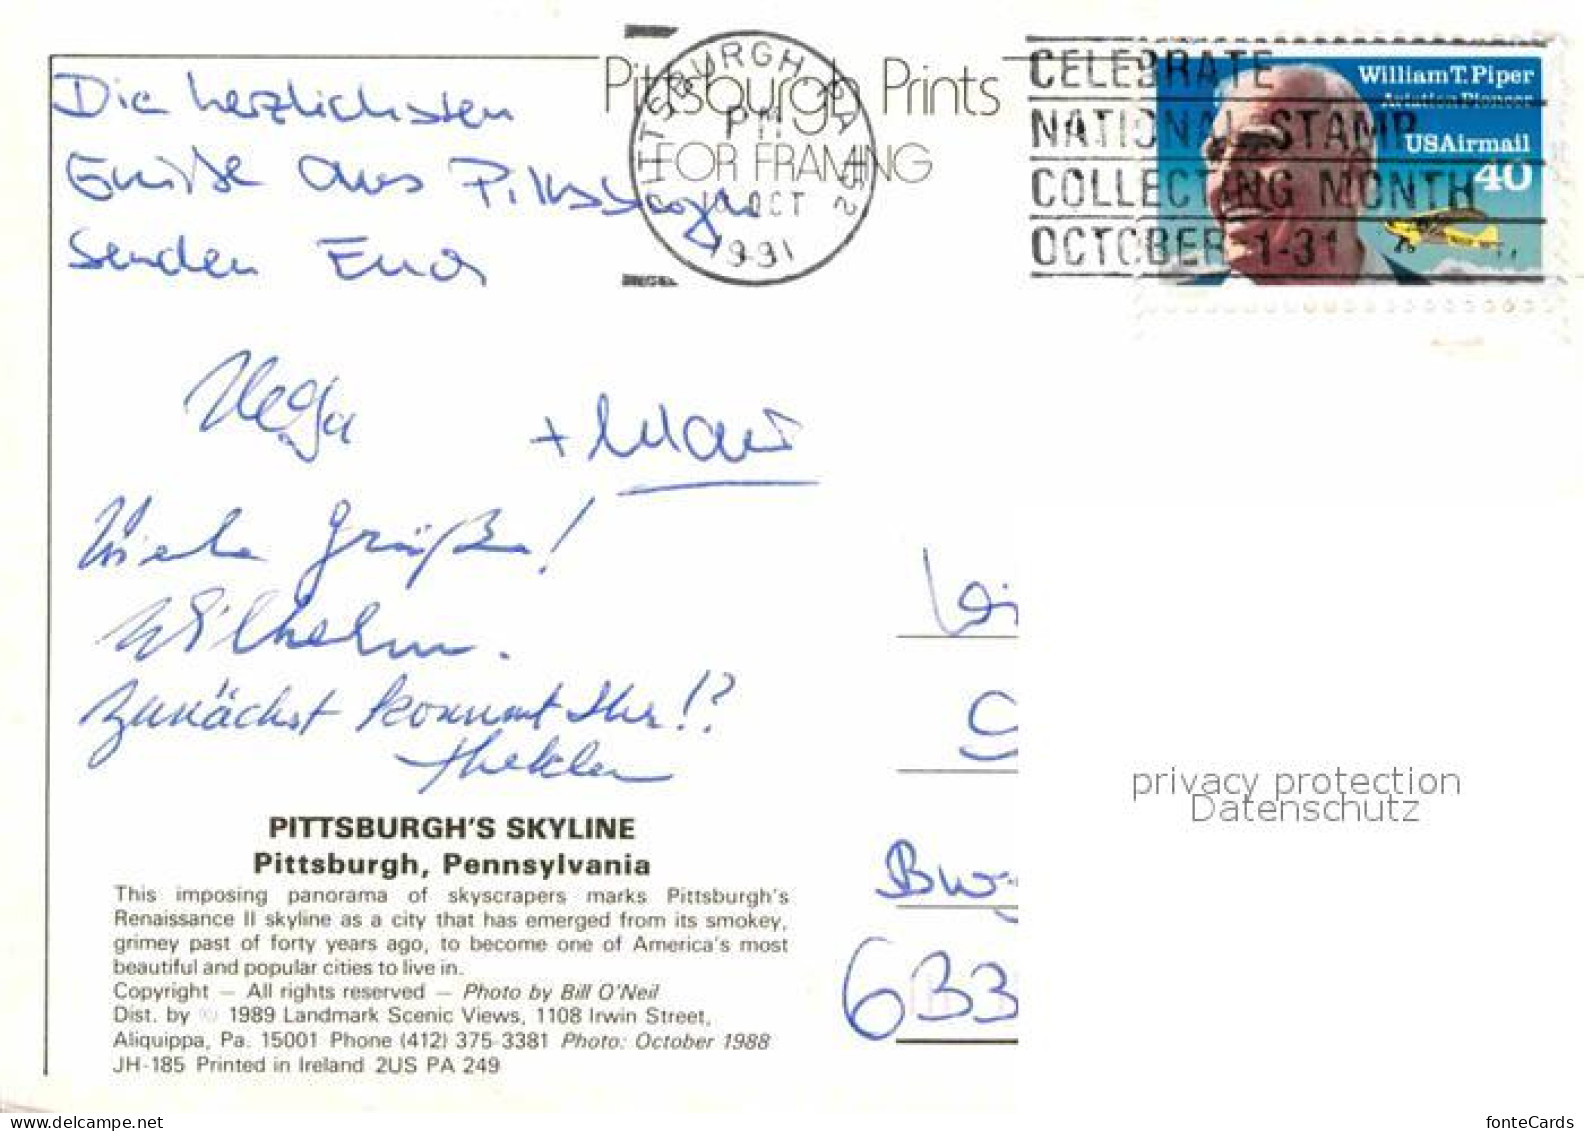 Pittsburgh Prints
FOR FRAMING
PITTSBURGH PA 152
PM
OCT
1991
CELEBRATE
NATIONAL STAMP
COLLECTING MONTH
OCTOBER 1-31
William T. Piper
Aviation Pioneer
USAirmail
40
Die herzlichsten
Grüße aus Pittsburgh
senden Euch
Helga + 
Viele Grüße!
Wilhelm.
Zunächst kommt Ihr!?
Thekla
PITTSBURGH'S SKYLINE
Pittsburgh, Pennsylvania
This imposing panorama of skyscrapers marks Pittsburgh's
Renaissance II skyline as a city that has emerged from its smokey,
grimey past of forty years ago, to become one of America's most
beautiful and popular cities to live in.
Copyright — All rights reserved — Photo by Bill O'Neil
Dist. by © 1989 Landmark Scenic Views, 1108 Irwin Street,
Aliquippa, Pa. 15001 Phone (412) 375-3381 Photo: October 1988
JH-185 Printed in Ireland 2US PA 249
633
privacy protection
Datenschutz
www.delcampe.net
fonteCards